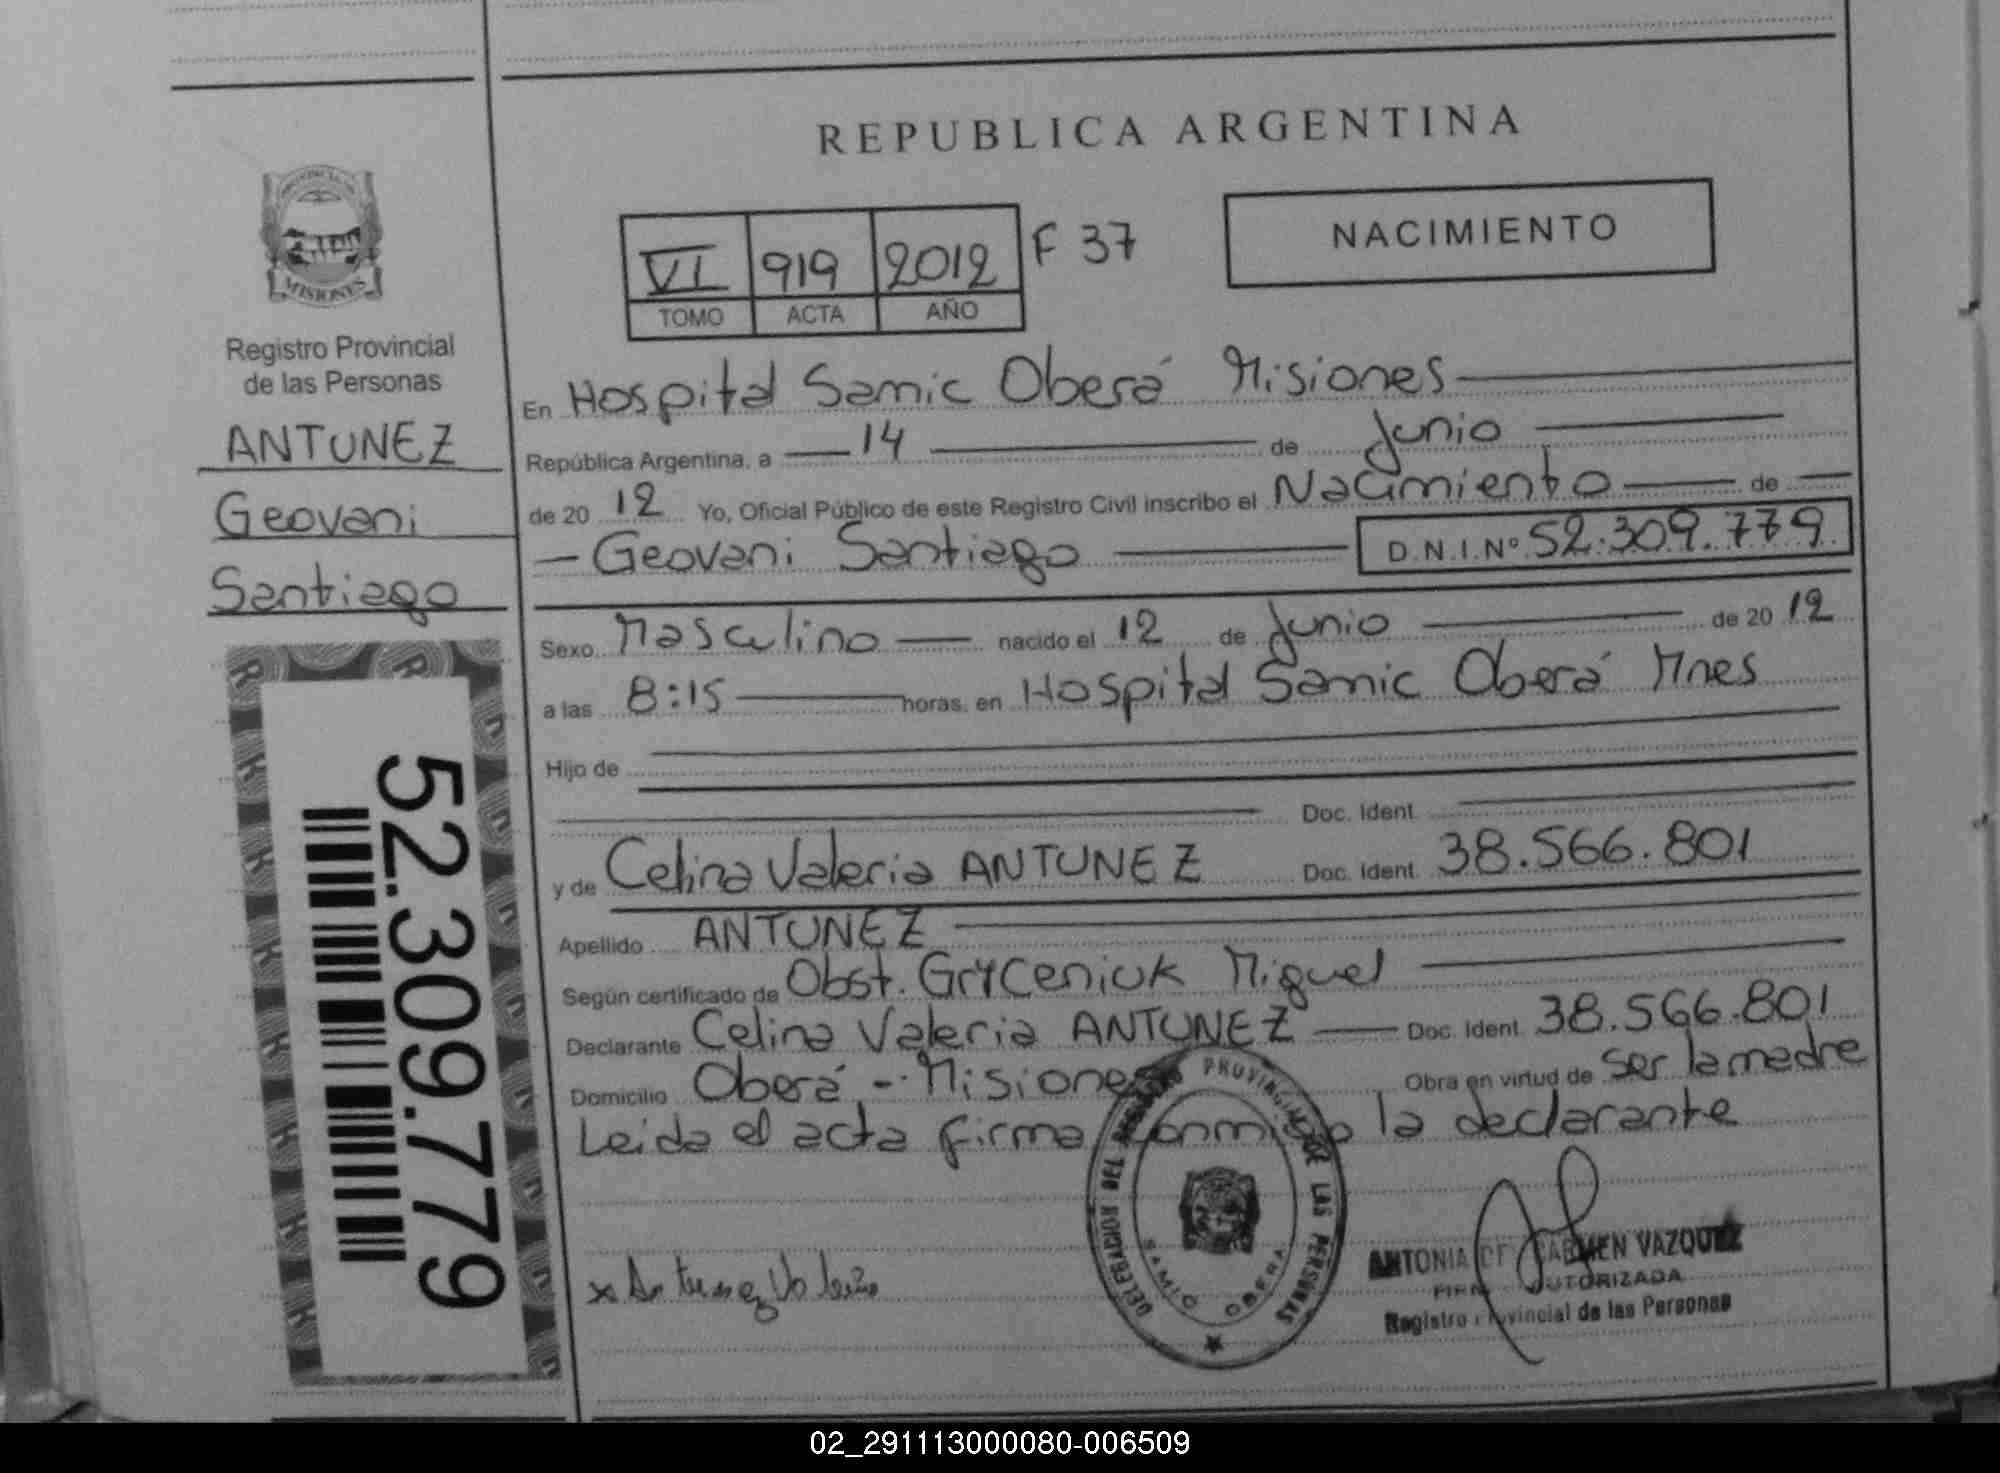 REPUBLICA ARGENTINA
PROVINCIA DE
MISIONES
Registro Provincial
de las Personas
ANTUNEZ
Geovani
Santiago
52.309.779
VI 919 2012 F 37
TOMO ACTA AÑO
NACIMIENTO
En Hospital Samic Oberá Misiones
República Argentina, a 14 de Junio
de 20 12 Yo, Oficial Público de este Registro Civil inscribo el Nacimiento de
Geovani Santiago D.N.I.Nº 52.309.779
Sexo Masculino nacido el 12 de Junio de 20 12
a las 8:15 horas, en Hospital Samic Oberá Mnes
Hijo de
Doc. Ident.
y de Celina Valeria ANTUNEZ Doc. Ident. 38.566.801
Apellido ANTUNEZ
Según certificado de Obst. GrYCeniuk Miguel
Declarante Celina Valeria ANTUNEZ Doc. Ident. 38.566.801
Domicilio Oberá - Misiones Obra en virtud de ser la madre
Leida el acta firma conmigo la declarante
x Antunez Valeria
DELEGACION DEL REGISTRO PROVINCIAL DE LAS PERSONAS
SAMIC OBERA
ANTONIA DEL CARMEN VAZQUEZ
FIRMA AUTORIZADA
Registro Provincial de las Personas
02_291113000080-006509